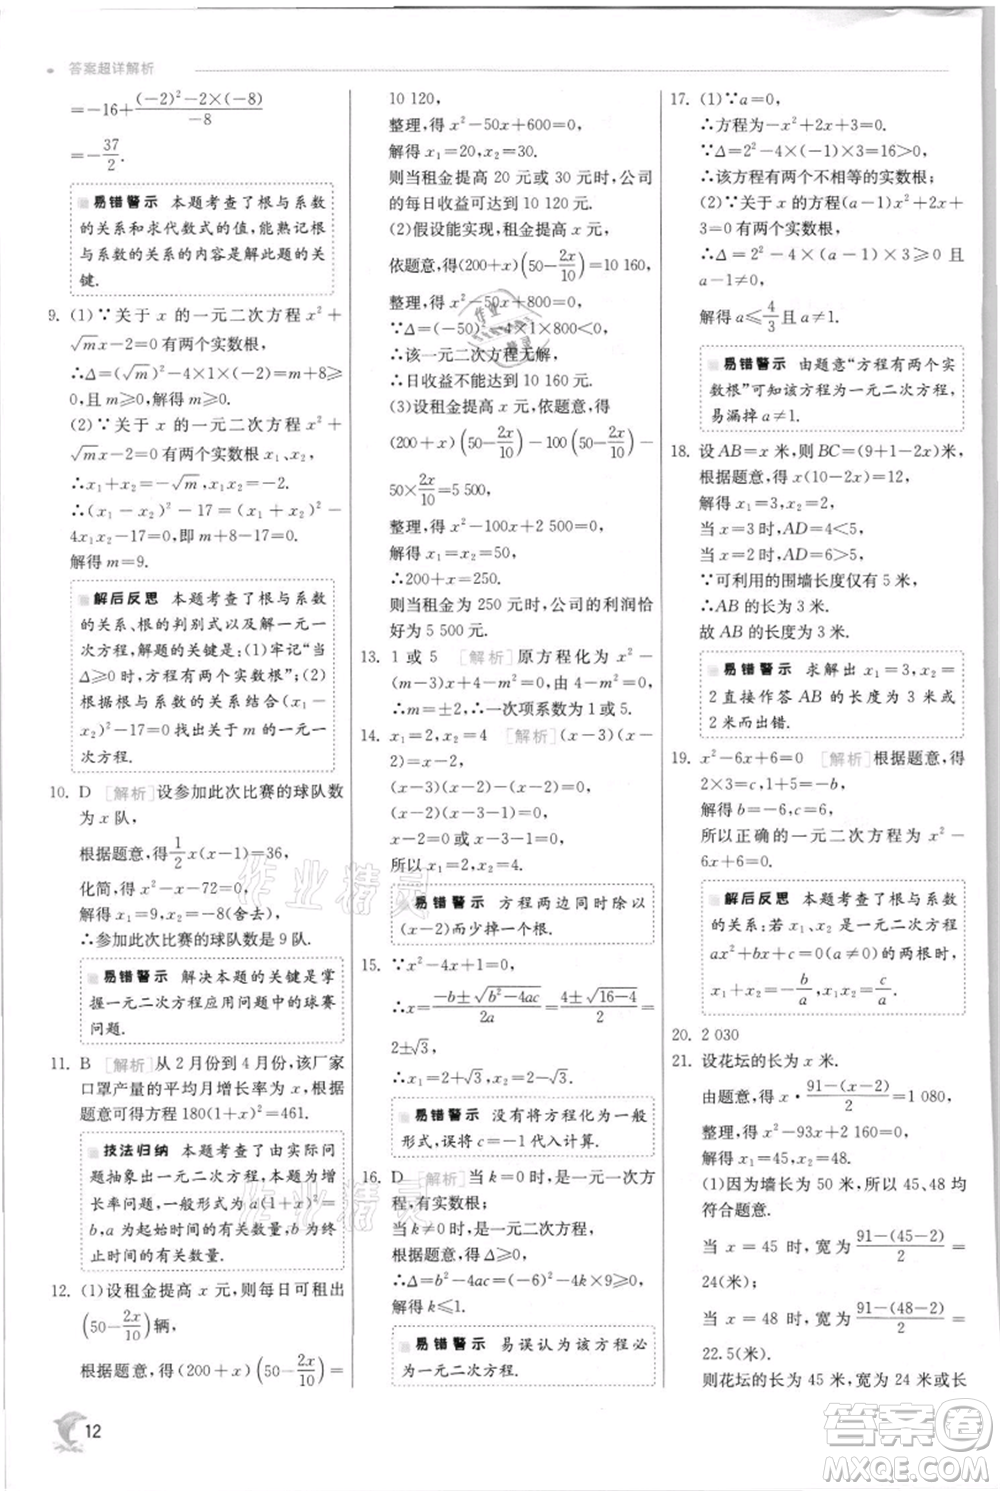 答案超详解析
=-16+\frac{(-2)²-2×(-8)}{-8}
=-\frac{37}{2}.
易错警示 本题考查了根与系数
的关系和求代数式的值,能熟记根
与系数的关系的内容是解此题的关
键.
9. (1)∵关于 x 的一元二次方程 x²+
√m x-2=0有两个实数根,
∴Δ=(√m)²-4×1×(-2)=m+8≥
0,且 m≥0,解得 m≥0.
(2)∵关于 x 的一元二次方程 x²+
√m x-2=0有两个实数根 x₁、x₂,
∴x₁+x₂=-√m,x₁x₂=-2.
∴(x₁-x₂)²-17=(x₁+x₂)²-
4x₁x₂-17=0,即 m+8-17=0.
解得 m=9.
解后反思 本题考查了根与系数
的关系、根的判别式以及一元一
次方程,解题的关键是:(1)牢记“当
Δ≥0时,方程有两个实数根”;(2)
根据根与系数的关系结合(x₁-
x₂)²-17=0找出关于 m 的一元一
次方程.
10. D [解析]设参加此次比赛的球队数
为 x 队,
根据题意,得\frac{1}{2}x(x-1)=36,
化简,得 x²-x-72=0,
解得 x₁=9,x₂=-8(舍去),
∴参加此次比赛的球队数是 9 队.
易错警示 解决本题的关键是掌
握一元二次方程应用问题中的球赛
问题.
11. B [解析]从 2 月份到 4 月份,该厂家
口罩产量的平均月增长率为 x,根据
题意可得方程 180(1+x)²=461.
技法归纳 本题考查了由实际问
题抽象出一元二次方程,本题为增
长率问题,一般形式为 a(1+x)²=
b,a 为起始时间的有关数量,b 为终
止时间的有关数量.
12. (1)设租金提高 x 元,则每日可租出
(50-\frac{2x}{10})辆,
根据题意,得(200+x)(50-\frac{2x}{10})=
10 120,
整理,得 x²-50x+600=0,
解得 x₁=20,x₂=30.
则当租金提高 20 元或 30 元时,公司
的每日收益可达到 10 120 元.
(2)假设能实现,租金提高 x 元,
依题意,得(200+x)(50-\frac{2x}{10})=10 160,
整理,得 x²-50x+800=0,
∴Δ=(-50)²-4×1×800<0,
∴该一元二次方程无解,
∴日收益不能达到 10 160 元.
(3)设租金提高 x 元,依题意,得
(200+x)(50-\frac{2x}{10})-100(50-\frac{2x}{10})-
50×\frac{2x}{10}=5 500,
整理,得 x²-100x+2 500=0,
解得 x₁=x₂=50,
∴200+x=250.
则当租金为 250 元时,公司的利润恰
好为 5 500元.
13. 1 或 5 [解析]原方程化为 x²-
(m-3)x+4-m²=0,∴4-m²=0,
∴m=±2,∴一次项系数为 1 或 5.
14. x₁=2,x₂=4 [解析](x-3)(x-
2)-(x-2)=0,
(x-3)(x-2)-(x-2)=0,
(x-2)(x-3-1)=0,
x-2=0 或 x-3-1=0,
所以 x₁=2,x₂=4.
易错警示 方程两边同时除以
(x-2)而少掉一个根.
15. ∵x²-4x+1=0,
∴x=\frac{-b±√(b²-4ac)}{2a}=\frac{4±√(16-4)}{2}=
2±√3,
∴x₁=2+√3,x₂=2-√3.
易错警示 没有将方程化为一般
形式,误将 c=-1代入计算.
16. D [解析]当 k=0 时,是一元一次方
程,有实数根;
当 k≠0 时,是一元二次方程,
根据题意,得 Δ≥0,
∴Δ=b²-4ac=(-6)²-4k×9≥0,
解得 k≤1.
易错警示 易误认为该方程必
为一元二次方程.
17. (1)∵a=0,
∴方程为-x²+2x+3=0.
∵Δ=2²-4×(-1)×3=16>0,
∴该方程有两个不相等的实数根;
(2)∵关于 x 的方程(a-1)x²+2x+
3=0有两个实数根,
∴Δ=2²-4×(a-1)×3≥0,且
a-1≠0,
解得 a≤\frac{4}{3}且 a≠1.
易错警示 由题意“方程有两个实
数根”可知该方程为一元二次方程,
易漏掉 a≠1.
18. 设 AB=x 米,则 BC=(9+1-2x)米,
根据题意,得 x(10-2x)=12,
解得 x₁=3,x₂=2,
当 x=3时,AD=4<5,
当 x=2时,AD=6>5,
∵可利用的围墙长度仅有 5 米,
∴AB 的长为 3 米.
故 AB 的长度为 3 米.
易错警示 求解出 x₁=3,x₂=
2 直接作答 AB 的长度为 3 米或
2 米而出错.
19. x²-6x+6=0 [解析]根据题意,得
2×3=c,1+5=-b,
解得 b=-6,c=6,
所以正确的一元二次方程为 x²-
6x+6=0.
解后反思 本题考查了根与系数
的关系:若 x₁、x₂是一元二次方程
ax²+bx+c=0(a≠0)的两根,则
x₁+x₂=-\frac{b}{a},x₁x₂=\frac{c}{a}.
20. 2 030
21. 设花坛的长为 x 米.
由题意,得 x·\frac{91-(x-2)}{2}=1 080,
整理,得 x²-93x+2 160=0,
解得 x₁=45,x₂=48.
(1)因为墙长为 50 米,所以 45、48 均
符合题意.
当 x=45 时,宽为\frac{91-(45-2)}{2}=
24(米);
当 x=48 时,宽为\frac{91-(48-2)}{2}=
22.5(米).
则花坛的长为 45 米,宽为 24 米或长
12
作业精灵
作业精灵
作业精灵
答案圈
MXQE.COM